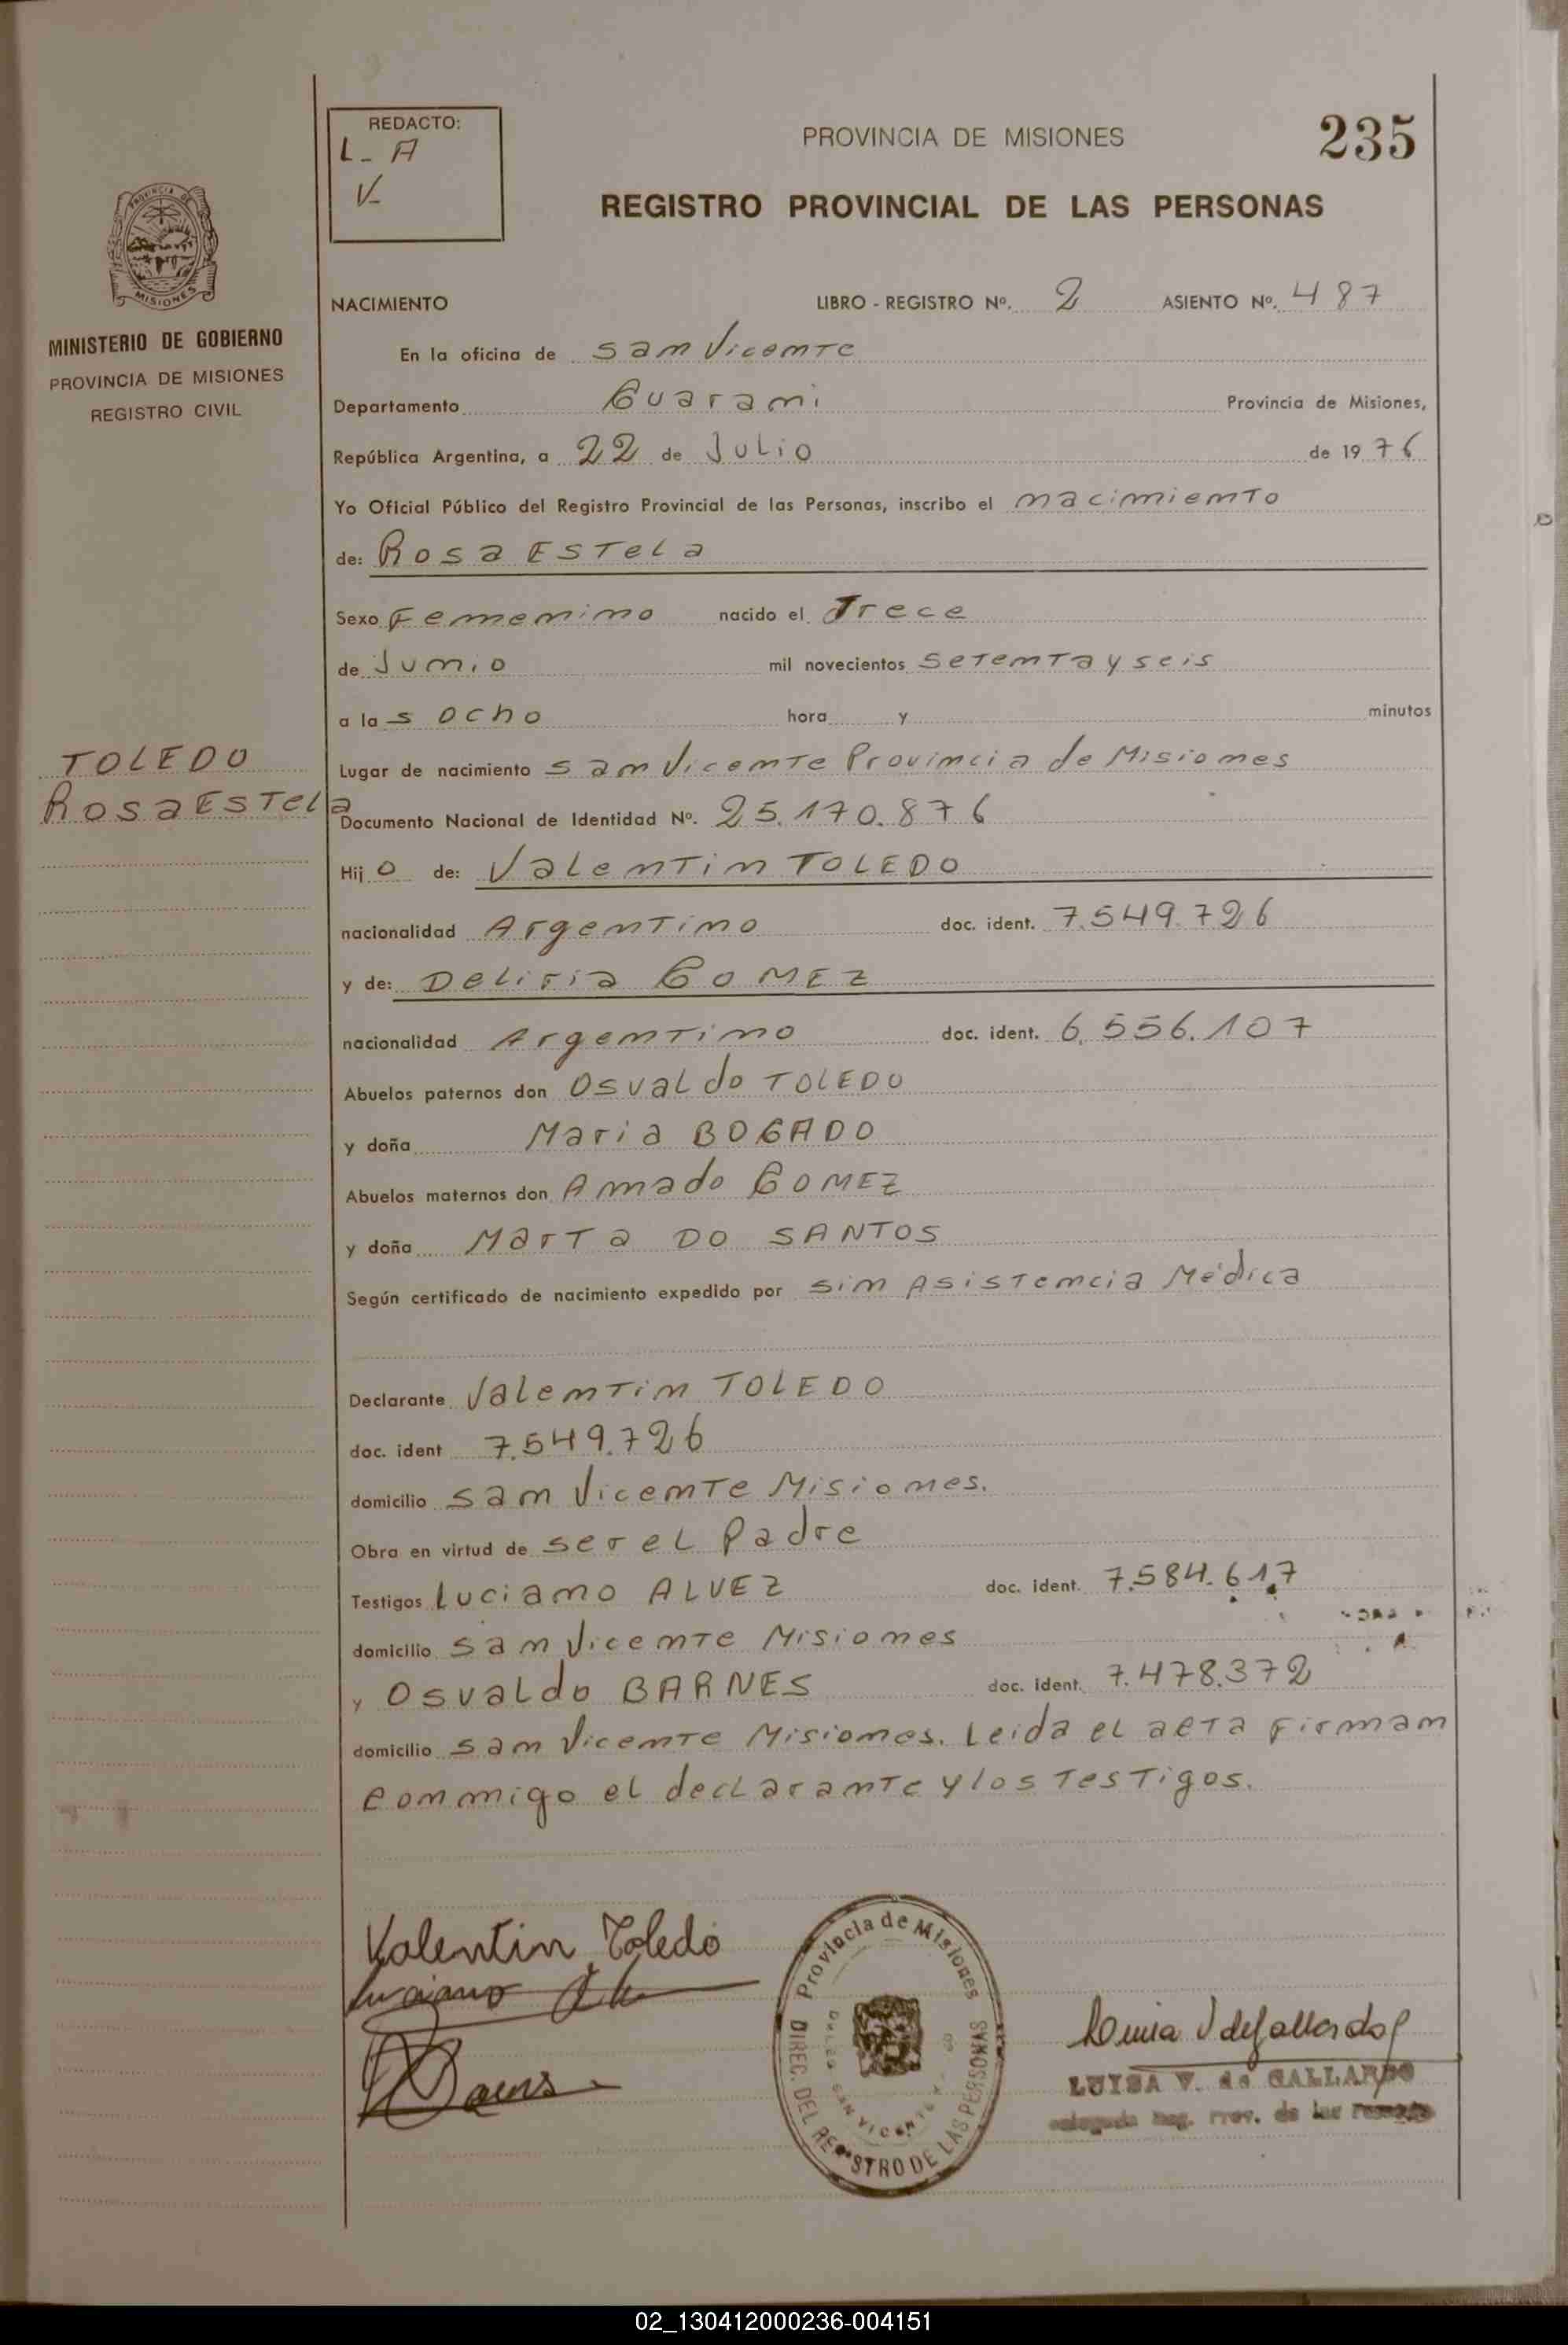 REDACTO:
L- A
V-
PROVINCIA DE MISIONES
235
REGISTRO PROVINCIAL DE LAS PERSONAS
PROVINCIA DE
MISIONES
MINISTERIO DE GOBIERNO
PROVINCIA DE MISIONES
REGISTRO CIVIL
NACIMIENTO LIBRO - REGISTRO Nº. 2 ASIENTO Nº. 487
En la oficina de San Vicente
Departamento Guarani Provincia de Misiones,
República Argentina, a 22 de Julio de 1976
Yo Oficial Público del Registro Provincial de las Personas, inscribo el nacimiento
de: Rosa Estela
Sexo Femenino nacido el Trece
de Junio mil novecientos setenta y seis
a las ocho hora y minutos
TOLEDO
Rosa Estela
Lugar de nacimiento San Vicente Provincia de Misiones
Documento Nacional de Identidad Nº. 25.170.876
Hijo de: Valentin TOLEDO
nacionalidad Argentino doc. ident. 7.549.726
y de: Deliria GOMEZ
nacionalidad Argentino doc. ident. 6.556.107
Abuelos paternos don Osvaldo TOLEDO
y doña Maria BOGADO
Abuelos maternos don Amado GOMEZ
y doña Marta DO SANTOS
Según certificado de nacimiento expedido por sin Asistencia Médica
Declarante Valentin TOLEDO
doc. ident 7.549.726
domicilio San Vicente Misiones.
Obra en virtud de ser el Padre
Testigos Luciano ALVEZ doc. ident. 7.584.617
domicilio San Vicente Misiones
y Osvaldo BARNES doc. ident. 7.478.372
domicilio San Vicente Misiones. Leida el acta Firman
conmigo el declarante y los Testigos.
Valentin Toledo
Luciano
Provincia de Misiones
DIREC. DEL REGISTRO DE LAS PERSONAS
SAN VICENTE
LUISA V. de GALLARDO
Reg. Prov. de las Personas
02_130412000236-004151